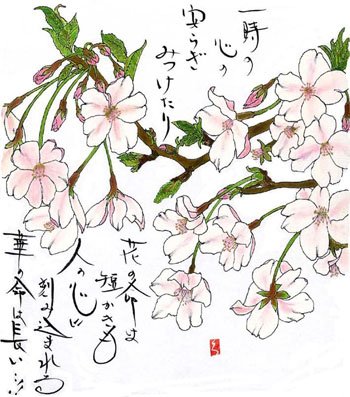 一時の
心の
安らぎ
みつけたり
花の命は
短かきも
人の心に
刻み込まれる
華の命は長い…